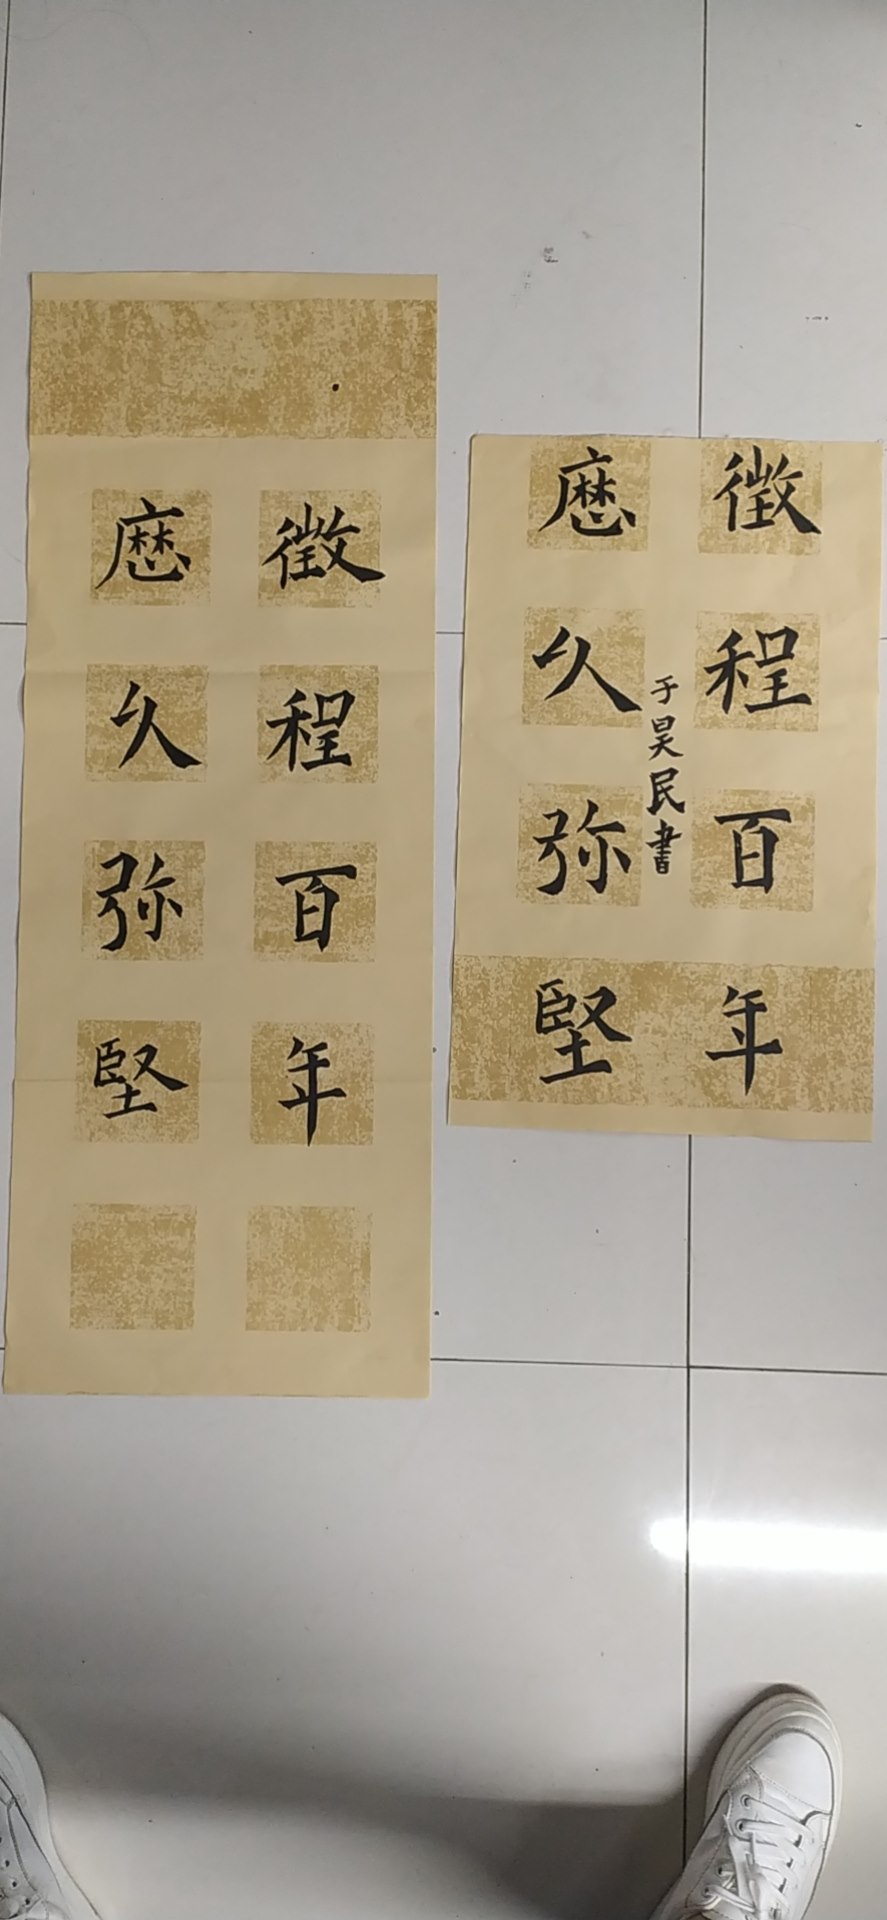 徵程百年
歷久弥堅
徵程百年
歷久弥堅
于昊民書